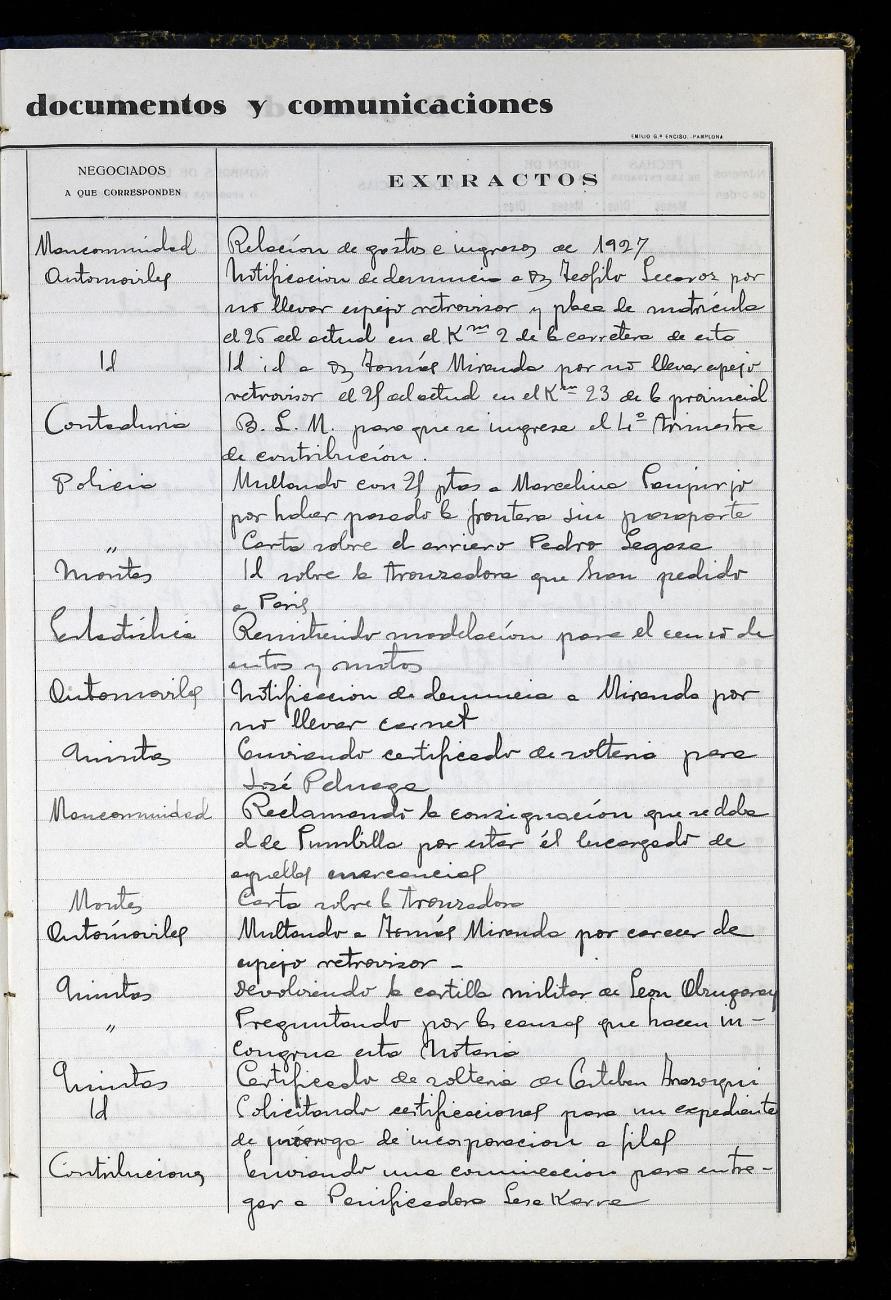 documentos y comunicaciones
EMILIO G.ª ENCISO.-PAMPLONA
NEGOCIADOS
A QUE CORRESPONDEN
EXTRACTOS
Mancomunidad Relación de gastos e ingresos de 1927
Automoviles Notificacion de denuncia a Teofilo por
no llevar espejo retrovisor y placa de matrícula
el 26 del actual en el Km 2 de la carretera de esta
Id Id id a Tomás Miranda por no llevar espejo
retrovisor el 25 del actual en el Km 23 de la provincial
Contaduria B. L. M. para que se ingrese el 4º trimestre
de contribución.
Policia Multando con 25 ptas a Marcelino
por haber pasado la frontera sin pasaporte
" Carta sobre el arriero Pedro Legasa
Montes Id sobre la tronzadora que han pedido
a Paris
Estadística Remitiendo modelación para el censo de
autos y motos
Automoviles Notificacion de denuncia a Miranda por
no llevar carnet
Quintas Enviando certificado de solteria para
José
Mancomunidad Reclamando la consignación que se daba
al de Pumbilla por estar él encargado de
aquellas
Montes Carta sobre la tronzadora
Automóviles Multando a Tomás Miranda por carecer de
espejo retrovisor -
Quintas Devolviendo la cartilla militar de Leon
" Preguntando por las causas que hacen in-
congrua esta Notaria
Quintas Certificado de solteria de Esteban
Id Solicitando certificaciones para un expediente
de prórroga de incorporacion a filas
Contribuciones Enviando una comunicacion para entre-
gar a Panificadora Lesakarra